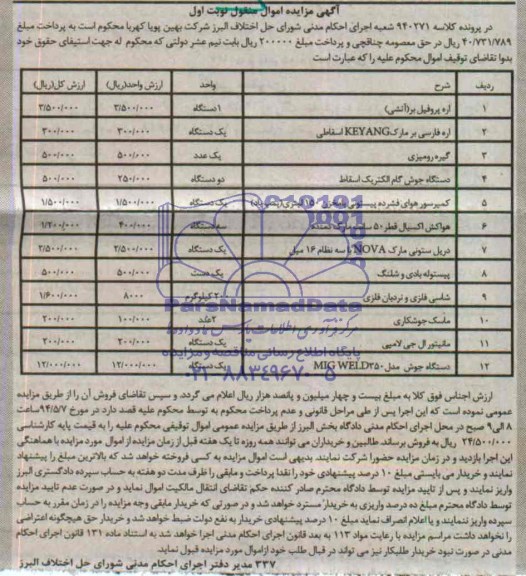 آگهی مزایده اموال منقول نوبت اول
در پرونده کلاسه ۹۴۰۲۷۱ شعبه اجرای احکام مدنی شورای حل اختلاف البرز شرکت بهین پویا کهربا محکوم است به پرداخت مبلغ
۴۰/۷۳۱/۷۸۹ ریال در حق معصومه چناقچی و پرداخت مبلغ ۲۰۰۰۰۰۰ ریال بابت نیم عشر دولتی که محکوم له جهت استیفای حقوق خود
بدوا تقاضای توقیف اموال محکوم علیه را که عبارت است
ردیف شرح واحد ارزش واحد(ریال) ارزش کل(ریال)
۱ اره پروفیل بر(آتشی) ۱دستگاه ۳/۵۰۰/۰۰۰ ۳/۵۰۰/۰۰۰
۲ اره فارسی بر مارک KEYANG اسقاطی یک دستگاه ۳۰۰/۰۰۰ ۳۰۰/۰۰۰
۳ گیره رومیزی یک عدد ۵۰۰/۰۰۰ ۵۰۰/۰۰۰
۴ دستگاه جوش گام الکتریک اسقاط دو دستگاه ۲۵۰/۰۰۰ ۵۰۰/۰۰۰
۵ کمپرسور هوای فشرده پیستونی یک دستگاه ۱/۵۰۰/۰۰۰ ۱/۵۰۰/۰۰۰
۶ هواکش اکسیال قطر ۵۰ سانت مارک دمنده سه دستگاه ۴۰۰/۰۰۰ ۱/۲۰۰/۰۰۰
۷ دریل ستونی مارک NOVA با سه نظام ۱۶ میل یک دستگاه ۲/۵۰۰/۰۰۰ ۲/۵۰۰/۰۰۰
۸ پیستوله بادی و شلنگ یک ست ۵۰۰/۰۰۰ ۵۰۰/۰۰۰
۹ شاسی فلزی و نردبان فلزی کیلوگرم ۸۰۰۰ ۱/۶۰۰/۰۰۰
۱۰ ماسک جوشکاری ۲عدد ۱۰۰/۰۰۰ ۲۰۰/۰۰۰
۱۱ مانیتور ال جی لامپی یک دستگاه ۲۰۰/۰۰۰ ۲۰۰/۰۰۰
۱۲ دستگاه جوش مدل MIG WELD۲۵۰ یک دستگاه ۱۲/۰۰۰/۰۰۰ ۱۲/۰۰۰/۰۰۰
ParsNamadData
مرکز فرآوری اطلاعات پارس نماد داده ها
پایگاه اطلاع رسانی مناقصه و مزایده
۰۲۱-۸۸۳۴۹۶۷۰-۵
ارزش اجناس فوق کلا به مبلغ بیست و چهار میلیون و پانصد هزار ریال اعلام می گردد و سپس تقاضای فروش آن را از طریق مزایده
عمومی نموده است که این اجرا پس از طی مراحل قانونی و عدم پرداخت محکوم به توسط محکوم علیه قصد دارد در مورخ ۹۴/۵/۷ساعت
۸ الی۹ صبح در محل اجرای احکام مدنی دادگاه بخش البرز از طریق مزایده عمومی اموال توقیفی محکوم علیه را به قیمت پایه کارشناسی
۲۴/۵۰۰/۰۰۰ ریال به فروش برساند. طالبین و خریداران می توانند همه روزه تا یک هفته قبل از زمان مزایده از اموال مورد مزایده با هماهنگی
این اجرا بازدید و در زمان مزایده حضورا شرکت نمایند بدیهی است اموال مزایده به کسی فروخته خواهد شد که بالاترین مبلغ را پیشنهاد
نمایند و خریدار می بایستی مبلغ ۱۰ درصد پیشنهادی خود را نقدا پرداخت و مابقی را ظرف مدت دو هفته به حساب سپرده دادگستری البرز
واریز نمایند و پس از تایید مزایده توسط دادگاه محترم صادر کننده حکم تقاضای انتقال مالکیت اموال نماید و در صورت عدم تایید مزایده
توسط دادگاه محترم مبلغ ده درصد واریزی به خریدار مسترد خواهد شد و در صورتی که خریدار مابقی وجه مزایده را در زمان مقرر به حساب
سپرده واریز ننمایند و یا اعلام انصراف نماید مبلغ ۱۰ درصد پیشنهادی خریدار به نفع دولت ضبط خواهد شد و خریدار حق هیچگونه اعتراضی
را نخواهد داشت مراسم مزایده با رعایت مواد ۱۱۳ به بعد قانون اجرای احکام مدنی اجرا خواهد شد به استناد ماده ۱۳۱ قانون اجرای احکام
مدنی در صورت نبود خریدار طلبکار نیز می تواند در قبال طلب خود ازاموال مورد مزایده قبول نماید.
۳۳۷ مدیر دفتر اجرای احکام مدنی شورای حل اختلاف البرز